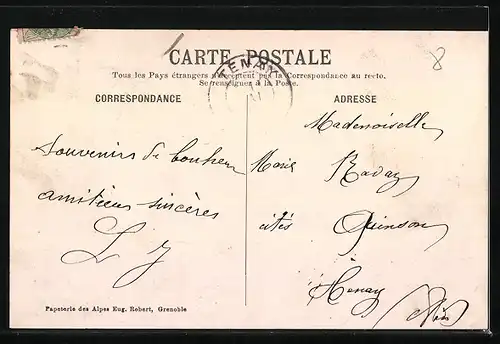 CARTE POSTALE
TENAY
Tous les Pays étrangers n'acceptent pas la Correspondance au recto.
Se renseigner à la Poste.
CORRESPONDANCE
ADRESSE
8
Souvenirs de bonheur
amitiés sincères
L J
Mademoiselle
Marie Ravaz
cités Quinson
Tenay
(Ain)
Papeterie des Alpes Eug. Robert, Grenoble